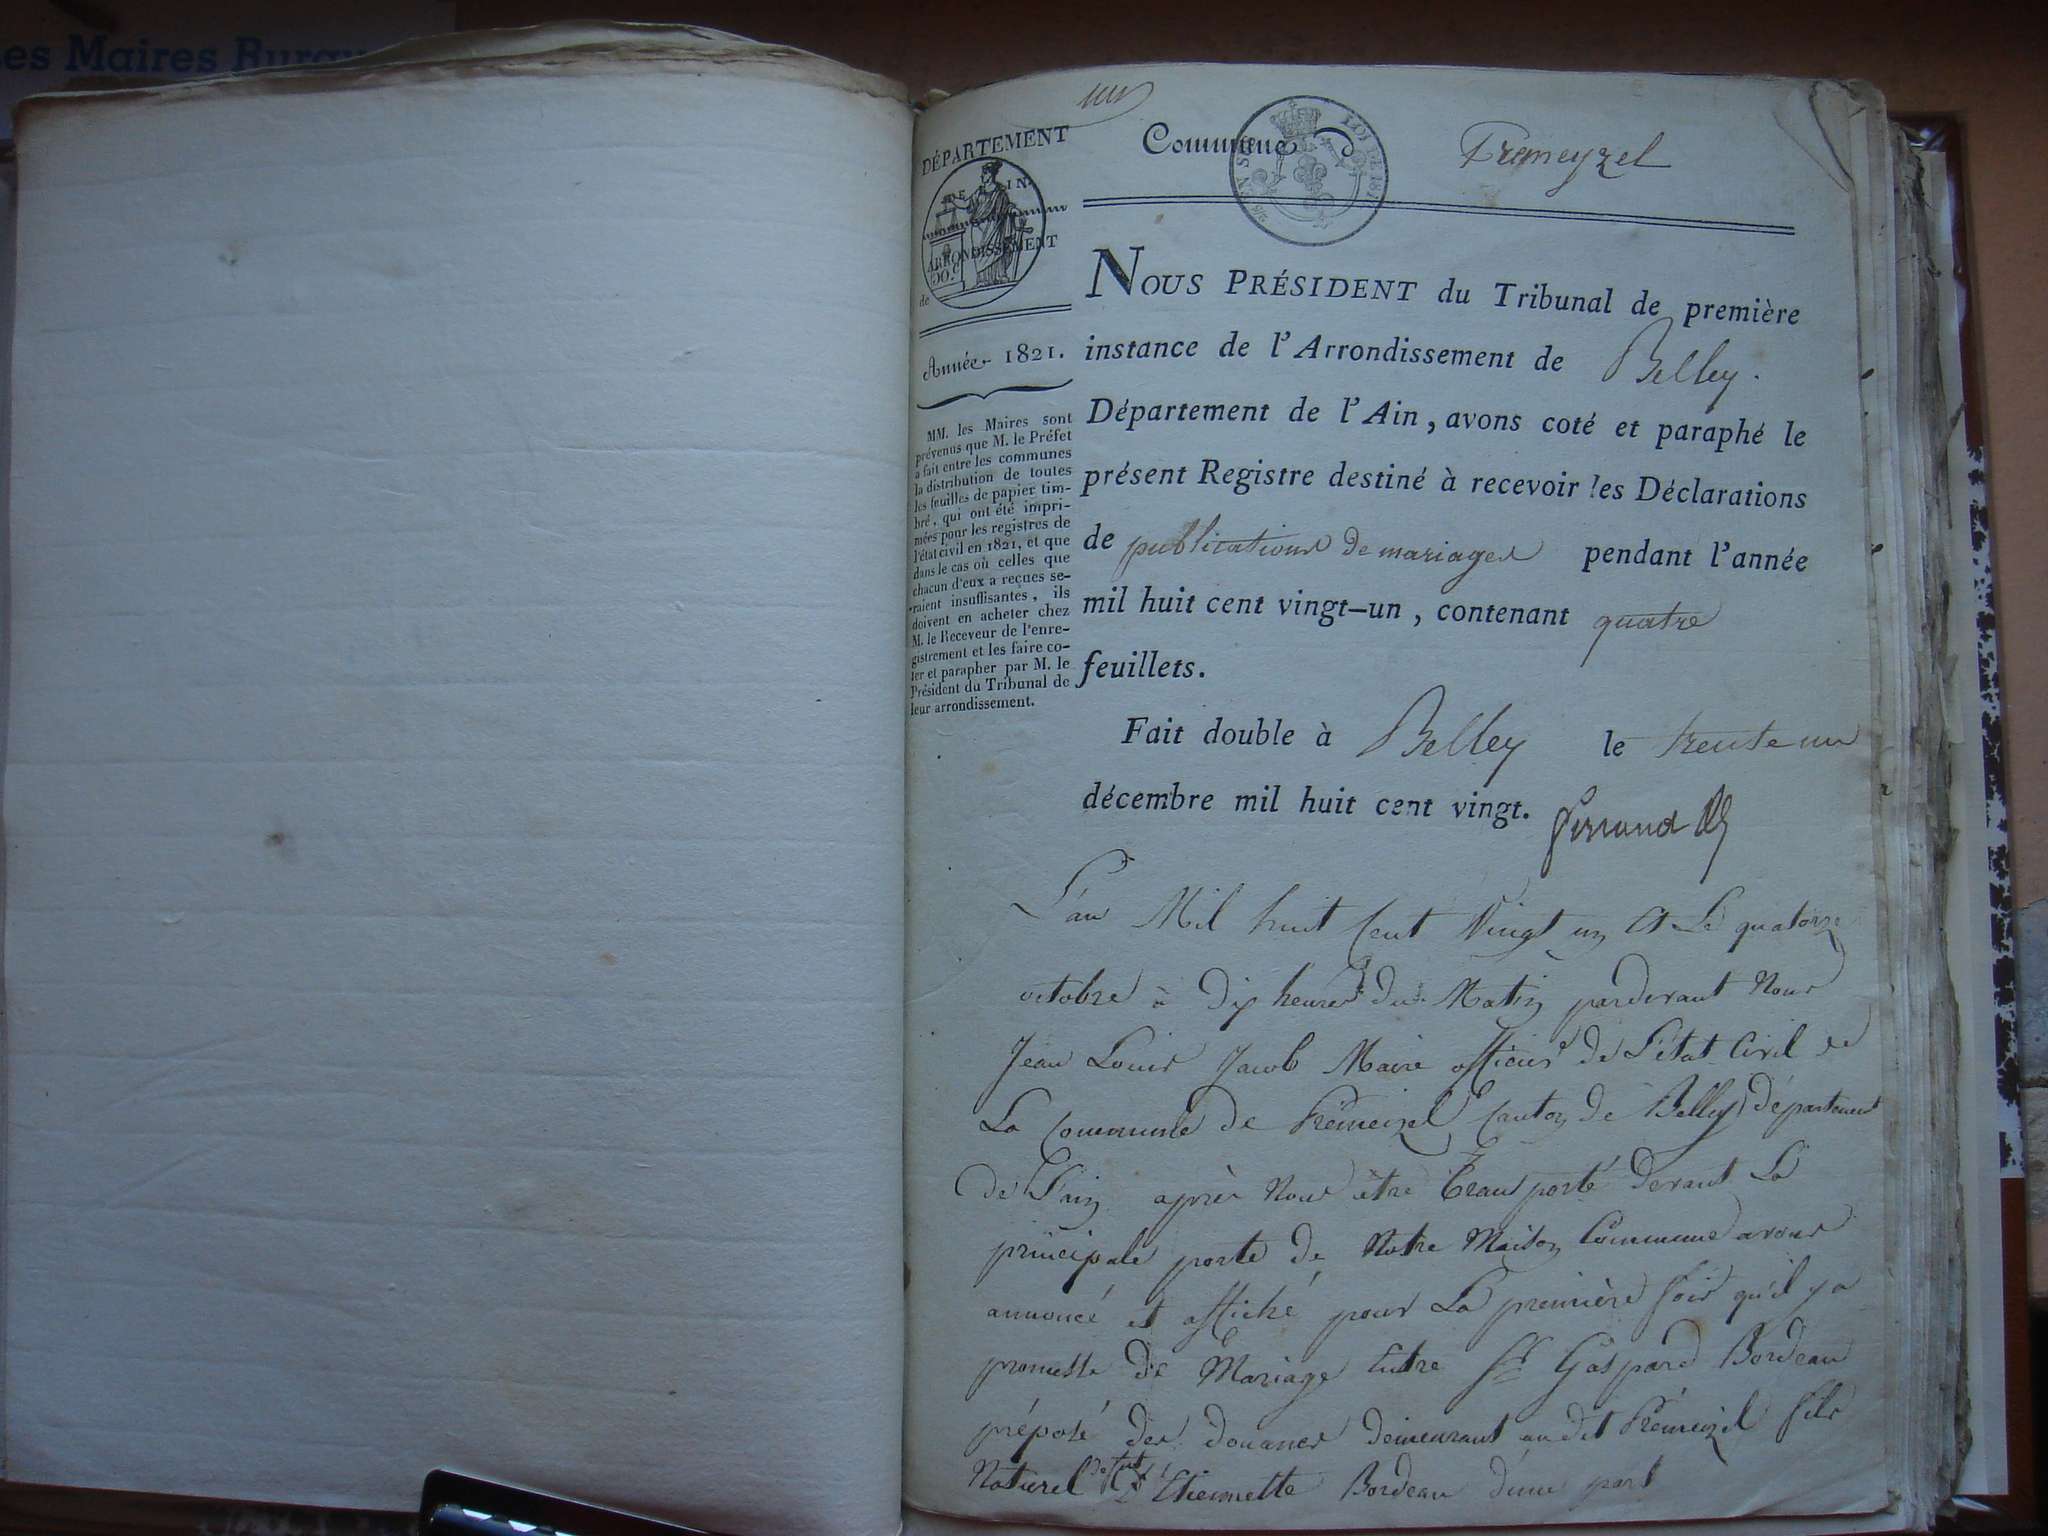 es Maires Burgu
un
DÉPARTEMENT
DE L'AIN.
ARRONDISSEMENT
de
Année 1821.
MM. les Maires sont
prévenus que M. le Préfet
a fait entre les communes
la distribution de toutes
les feuilles de papier tim-
bré, qui ont été impri-
mées pour les registres de
l'état civil en 1821, et que
dans le cas où celles que
chacun d'eux a reçues se-
raient insuffisantes, ils
doivent en acheter chez
M. le Receveur de l'enre-
gistrement et les faire co-
ter et parapher par M. le
Président du Tribunal de
leur arrondissement.
Commune d Premeyzel
NOUS PRÉSIDENT du Tribunal de première
instance de l'Arrondissement de Belley.
Département de l'Ain, avons coté et paraphé le
présent Registre destiné à recevoir les Déclarations
de publications de mariages pendant l'année
mil huit cent vingt-un, contenant quatre
feuillets.
Fait double à Belley le trente un
décembre mil huit cent vingt.
L'an Mil huit Cent Vingt un et Le quatorze
octobre à dix heures du Matin pardevant Nous
Jean Louis Jacob Maire officier de L'état Civil de
La Commune de Prémeizel Canton de Belley département
de L'ain après Nous être transporté devant La
principale porte de Notre Maison Commune avons
annoncé et affiché pour La première fois qu'il y a
promesse de Mariage Entre Sr Gaspard Bordeau
préposé des douanes demeurant au dit Prémeizel fils
Naturel de Etiennette Bordeau d'une part